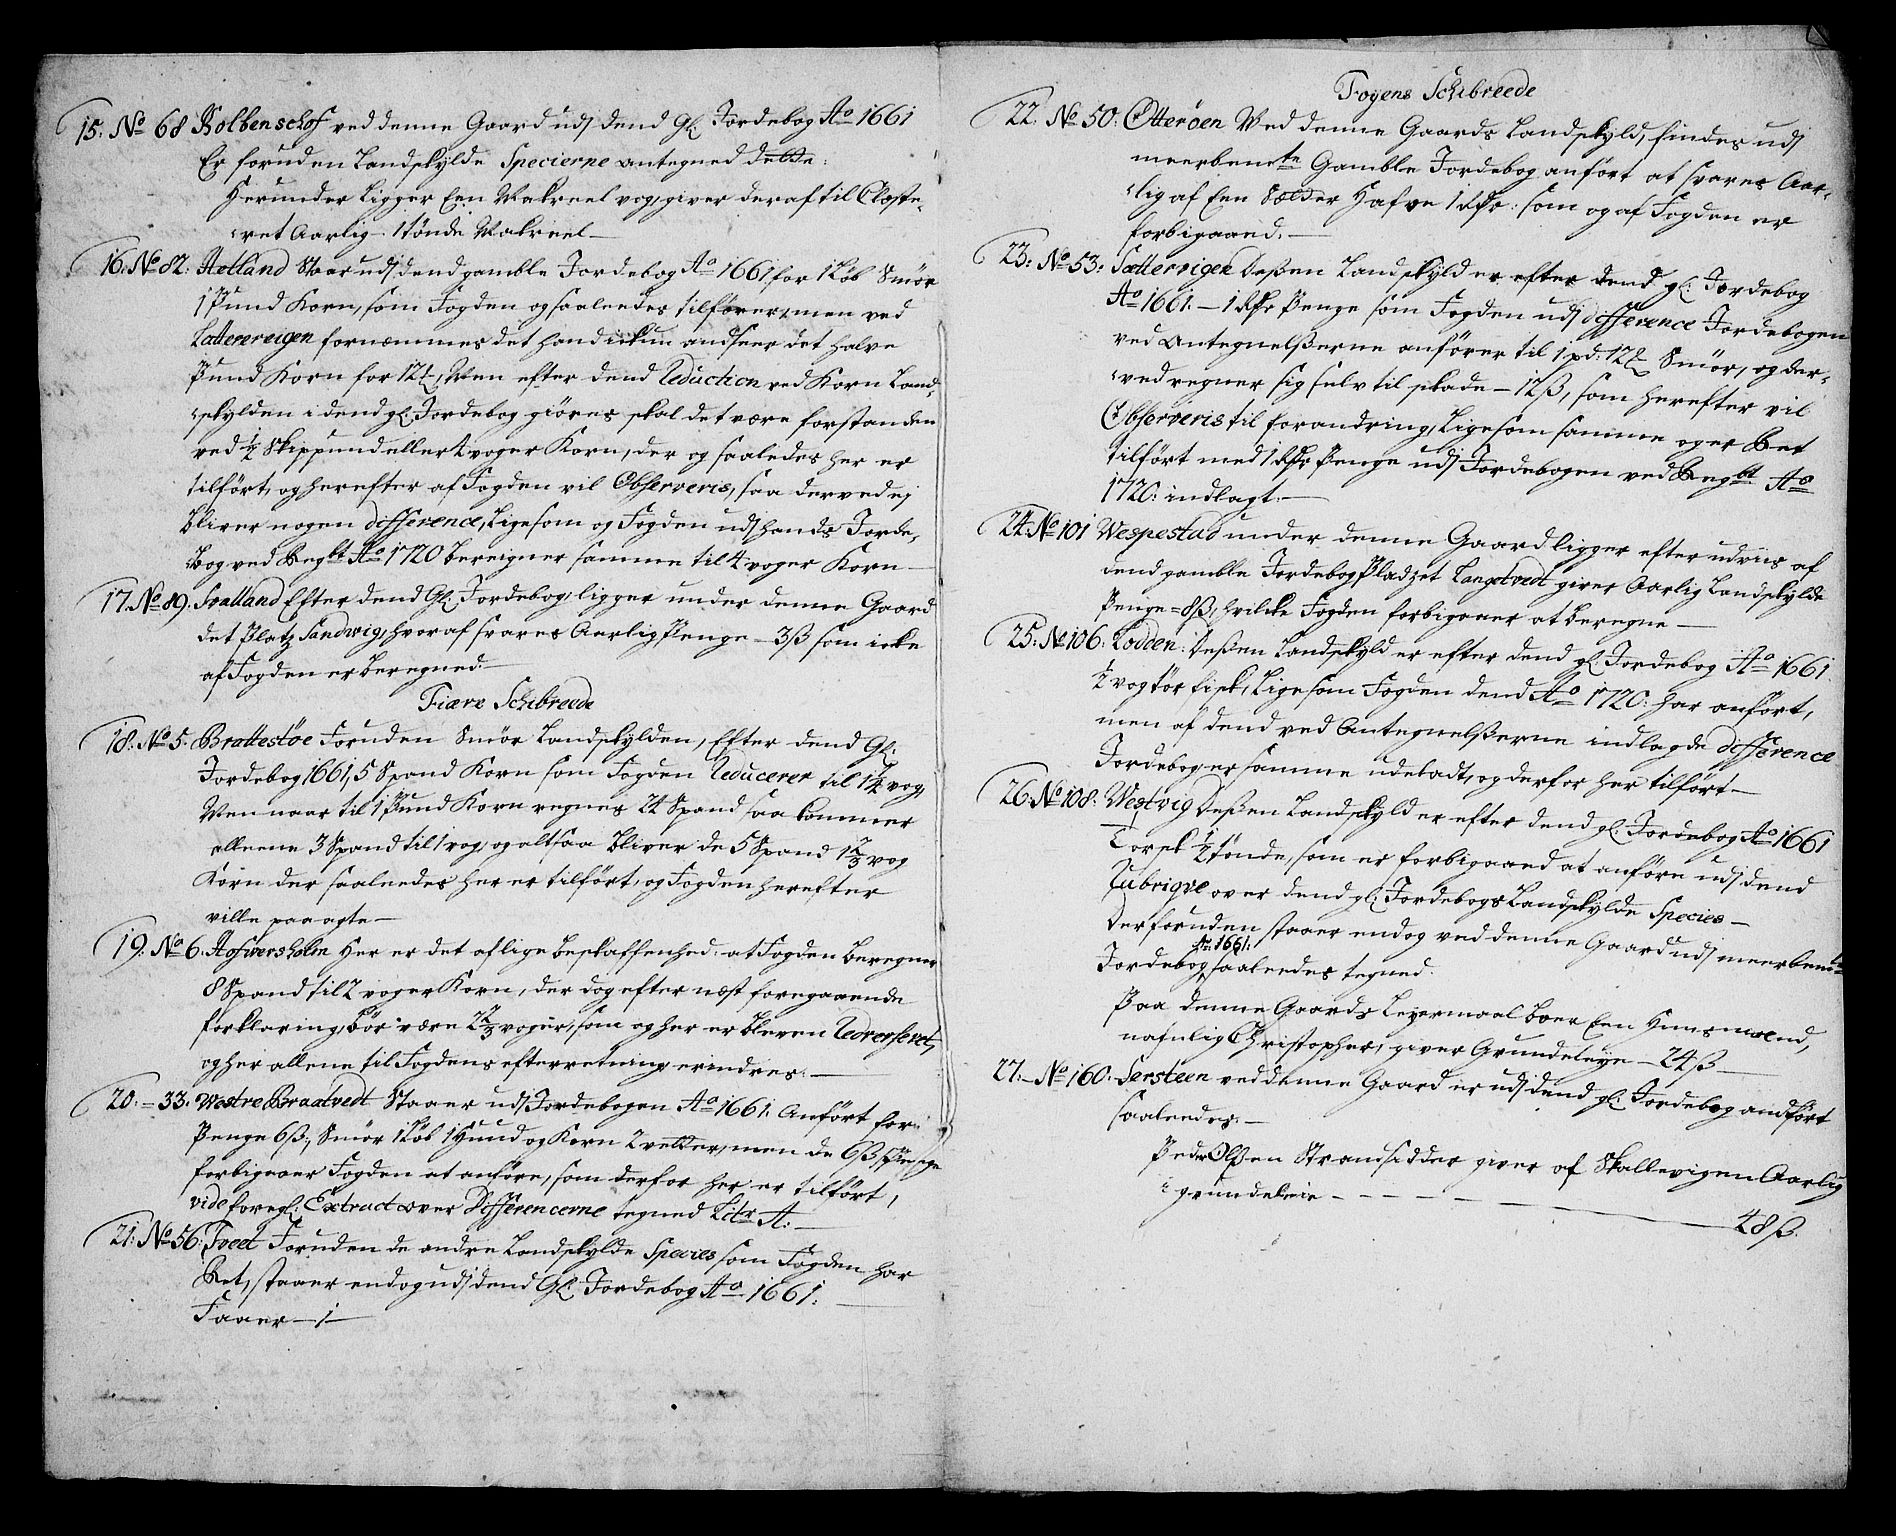 15: No 68 Kolbenschof ved denne Gaard udj dend Gl: Jordebog Ao 1661
Er foruden Landskylds Specierne antegned dette:
Herunder Ligger Een Makreel vog, giver deraf til Closte-
ret Aarlig 1 tønde Makreel
16: No 82: Aatland Staar udj dend gamble Jordebog Ao 1661 for 1 Løb Smør
1 Pund Korn, som Fogden og saaledes tilfører, men ved
Lattereveigen fornemmes det hand ickun andseer det halve
Pund Korn for 12 L, Men efter dend Reduction ved Korn Land-
skylden i dend gl: Jordebog giøres skal det være forstanden
ved ½ Skippund eller 4 voger Korn, der og saaledes her er
tilført, og herefter af Fogden vil Observeris, saa derved ej
bliver nogen difference, Ligesom og Fogden udj hands Jorde-
bog ved Regbl Ao 1720 bereigner samme til 4 voger Korn
17. No 89. Svalland Efter dend Gl: Jordebog, ligger under denne Gaard
det Platz Sandwig, hvoraf svares Aarlig, Penge - 3ß som icke
af Fogden er beregned.
Fiære Schibreede
18. No 5. Brattestøe Foruden Smør Landskylden, Efter dend Gl:
Jordebog 1661, 5 Spand Korn som Fogden Reducerer til 1¼ vog,
Men naar til 1 Pund Korn regnes 24 Spand saa kommer
alleene 3 Spand til 1 vog, og altsaa bliver de 5 Spand 1⅔ vog
Korn der saaleedes her er tilført, og Fogden herefter
ville paa agte
19. No 6. Hofwersholm Her er det af lige beskaffenhed: at Fogden beregner
8 Spand til 2 voger Korn, der dog efter næst foregaaende
forklaring, bør være 2⅔ voger, som og her er bleven Redresseret,
og her allene til Fogdens efterretning erindres.
20. - 33. Westre Braatvedt Staaer udj Jordebogen Ao 1661. Anført for
Penge 6ß, Smør 1 Løb 1 Hund og Korn 2 vetter, men de 6ß Penge
forbigaaer Fogden at anføre, som derfor her er tilført,
vide foregl: Extract over Differencerne tegned Litr A:
21: No 56. Tveet Foruden de andre Landskylds Species som Fogden har
Ret, staaer endog udj dend Gl: Jordebog Ao 1661:
Faaer - 1 -
Foyens Schibreede
22. No 50: Otterøen Ved denne Gaards Landskyld, findes udj
meerbemte Gamble Jordebog anført at svares Aar-
lig af Een Hafve 1 Rdr: som og af Fogden er
forbigaaed.
23: No 53: Sattervigen Deßen Landskyld er efter dend gl: Jordebog
Ao 1661. - 1 Rdr Penge som Fogden udj difference Jordebogen
ved Antegnelßerne anfører til 1 pd: 12 L Smør, og der-
ved regner sig selv til skade - 12ß, som herefter vil
Observeris til forandring, Ligesom samme og er Ret
tilført med 1 Rdr Penge udj Jordebogen ved Regbl Ao
1720: indlagt.
24 No 101 Wespestad under denne Gaard ligger efter udviis af
dend gamble Jordebog Pladzet Langetvedt giver Aarlig Landskylde
Penge = 8ß, hvilcke Fogden forbigaaer at beregne
25: No 106: Lodden: Deßen Landskyld er efter dend gl: Jordebog Ao 1661
½ vog tør fisk, Ligesom Fogden dend Ao 1720: har anført,
men af dend ved Antegnelßerne indlagde difference
Jordebog er samme udeladt, og derfor her tilført
26: No 108: Westvig Deßen Landskyld er efter dend gl: Jordebog Ao 1661
Torsk ½ tønde, som er forbigaaed at anføre udj dend
Rubriqve over dend gl: Jordebogs Landskylds Species
Derforuden staaer endog ved denne Gaard udj meerbemte
Jordebog Ao 1661. saaleedes tegned.
Paa denne Gaards Leyermaal boer Een Huusmand,
nafnlig Christopher, giver Grundeleye - 24ß
27: - No 160. Sersteen ved denne Gaard er udj dend gl: Jordebog andført
saaleedes.
Peder Olßen Strandsidder giver af Skallevigen Aarlig
i grundeleie - - - - - - 48ß.